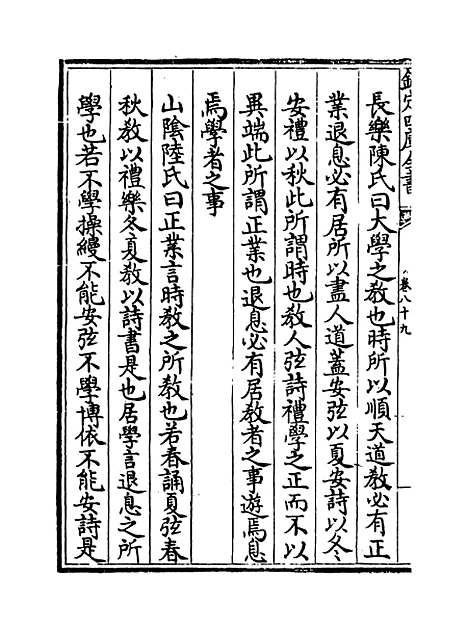 欽定四庫全書
卷八十九
長樂陳氏曰大學之教也時所以順天道教必有正
業退息必有居所以盡人道蓋安弦以夏安詩以冬
安禮以秋此所謂時也教人弦詩禮學之正而不以
異端此所謂正業也退息必有居教者之事遊焉息
焉學者之事
山陰陸氏曰正業言時教之所教也若春誦夏弦春
秋教以禮樂冬夏教以詩書是也居學言退息之所
學也若不學操縵不能安弦不學博依不能安詩是